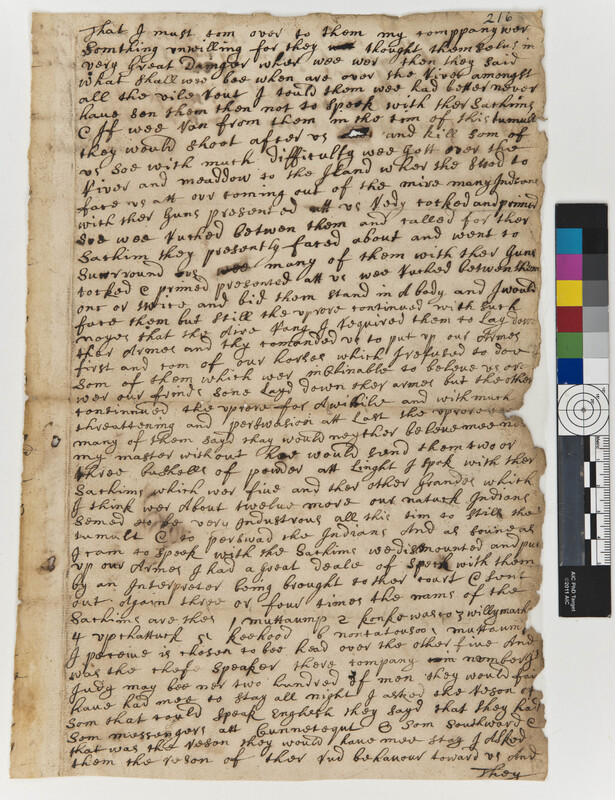 216
That I must com over to them my comppany wer
Somthing vnwilling for they thought themselus in
very Great Dainger wher wee wer then they said
what shall wee bee when are over the River amongst
all the vile Rout I tould them wee had better never
have sen them then not to Speek with ther Sachims
& If wee Ran from them in the tim of this tumult
they would shoot after vs and kill som of
vs Soe with much difficulty wee Gott over the
River and meaddow to the Iland wher the stood to
face vs att our coming out of the mire many Indians
with ther Guns presented att vs Redy cocked and primed
Soe wee Rushed betwen them and called for ther
Sachim they presently faced about and went to
Surround vs many of them with ther Guns
cocked & primed presented att vs wee Rushed betwen them
onc or twice and bid them stand in a body and I would
face them but still the vprore continued with such
noyes that the Aire Rang I required them to Lay down
ther Armes and thy comanded vs to put vp our Armes
first and com of our horses which I refused to doe
Som of them which wer inclinable to beleue vs or
wer our frinds Sone Layd down ther armes but the other
continnued the vprore for a while and with much
threattening and perswasion att Last the vprore
many of them Sayd thay would neyther beleue mee no
my master without hee would send them two or
three bushells of powder att Linght I Spok with ther
Sachims which wer five and ther other Grandes which
I think wer About twelve more our natuck Indians
Semed to be very Industrous all this tim to still the
tumult & to perswad the Indians And as soune as
I cam to Speek with the Sachims we dismounted and put
vp our Armes I had a great deale of Speech with them
by an Interpreter being brought to ther court & sent
out again three or four times the nams of the
Sachims are thes 1 muttaump 2 konkewasco 3 willymach
4 vpchattuck 5 keehood 6 nontatousoo muttaum
I perceive is chosen to bee head over the other five And
was the chefe Speaker there company in number I
Judg may bee ner two hundred of men they would fain
have had mee to stay all night I asked the Reson of
Som that could Speak English they Sayd that they had
Som messengers att Cunnetequt & Som Southward &
that was the Reson they would have mee stay I Asked
them the reson of ther Rud behavour toward vs And
They